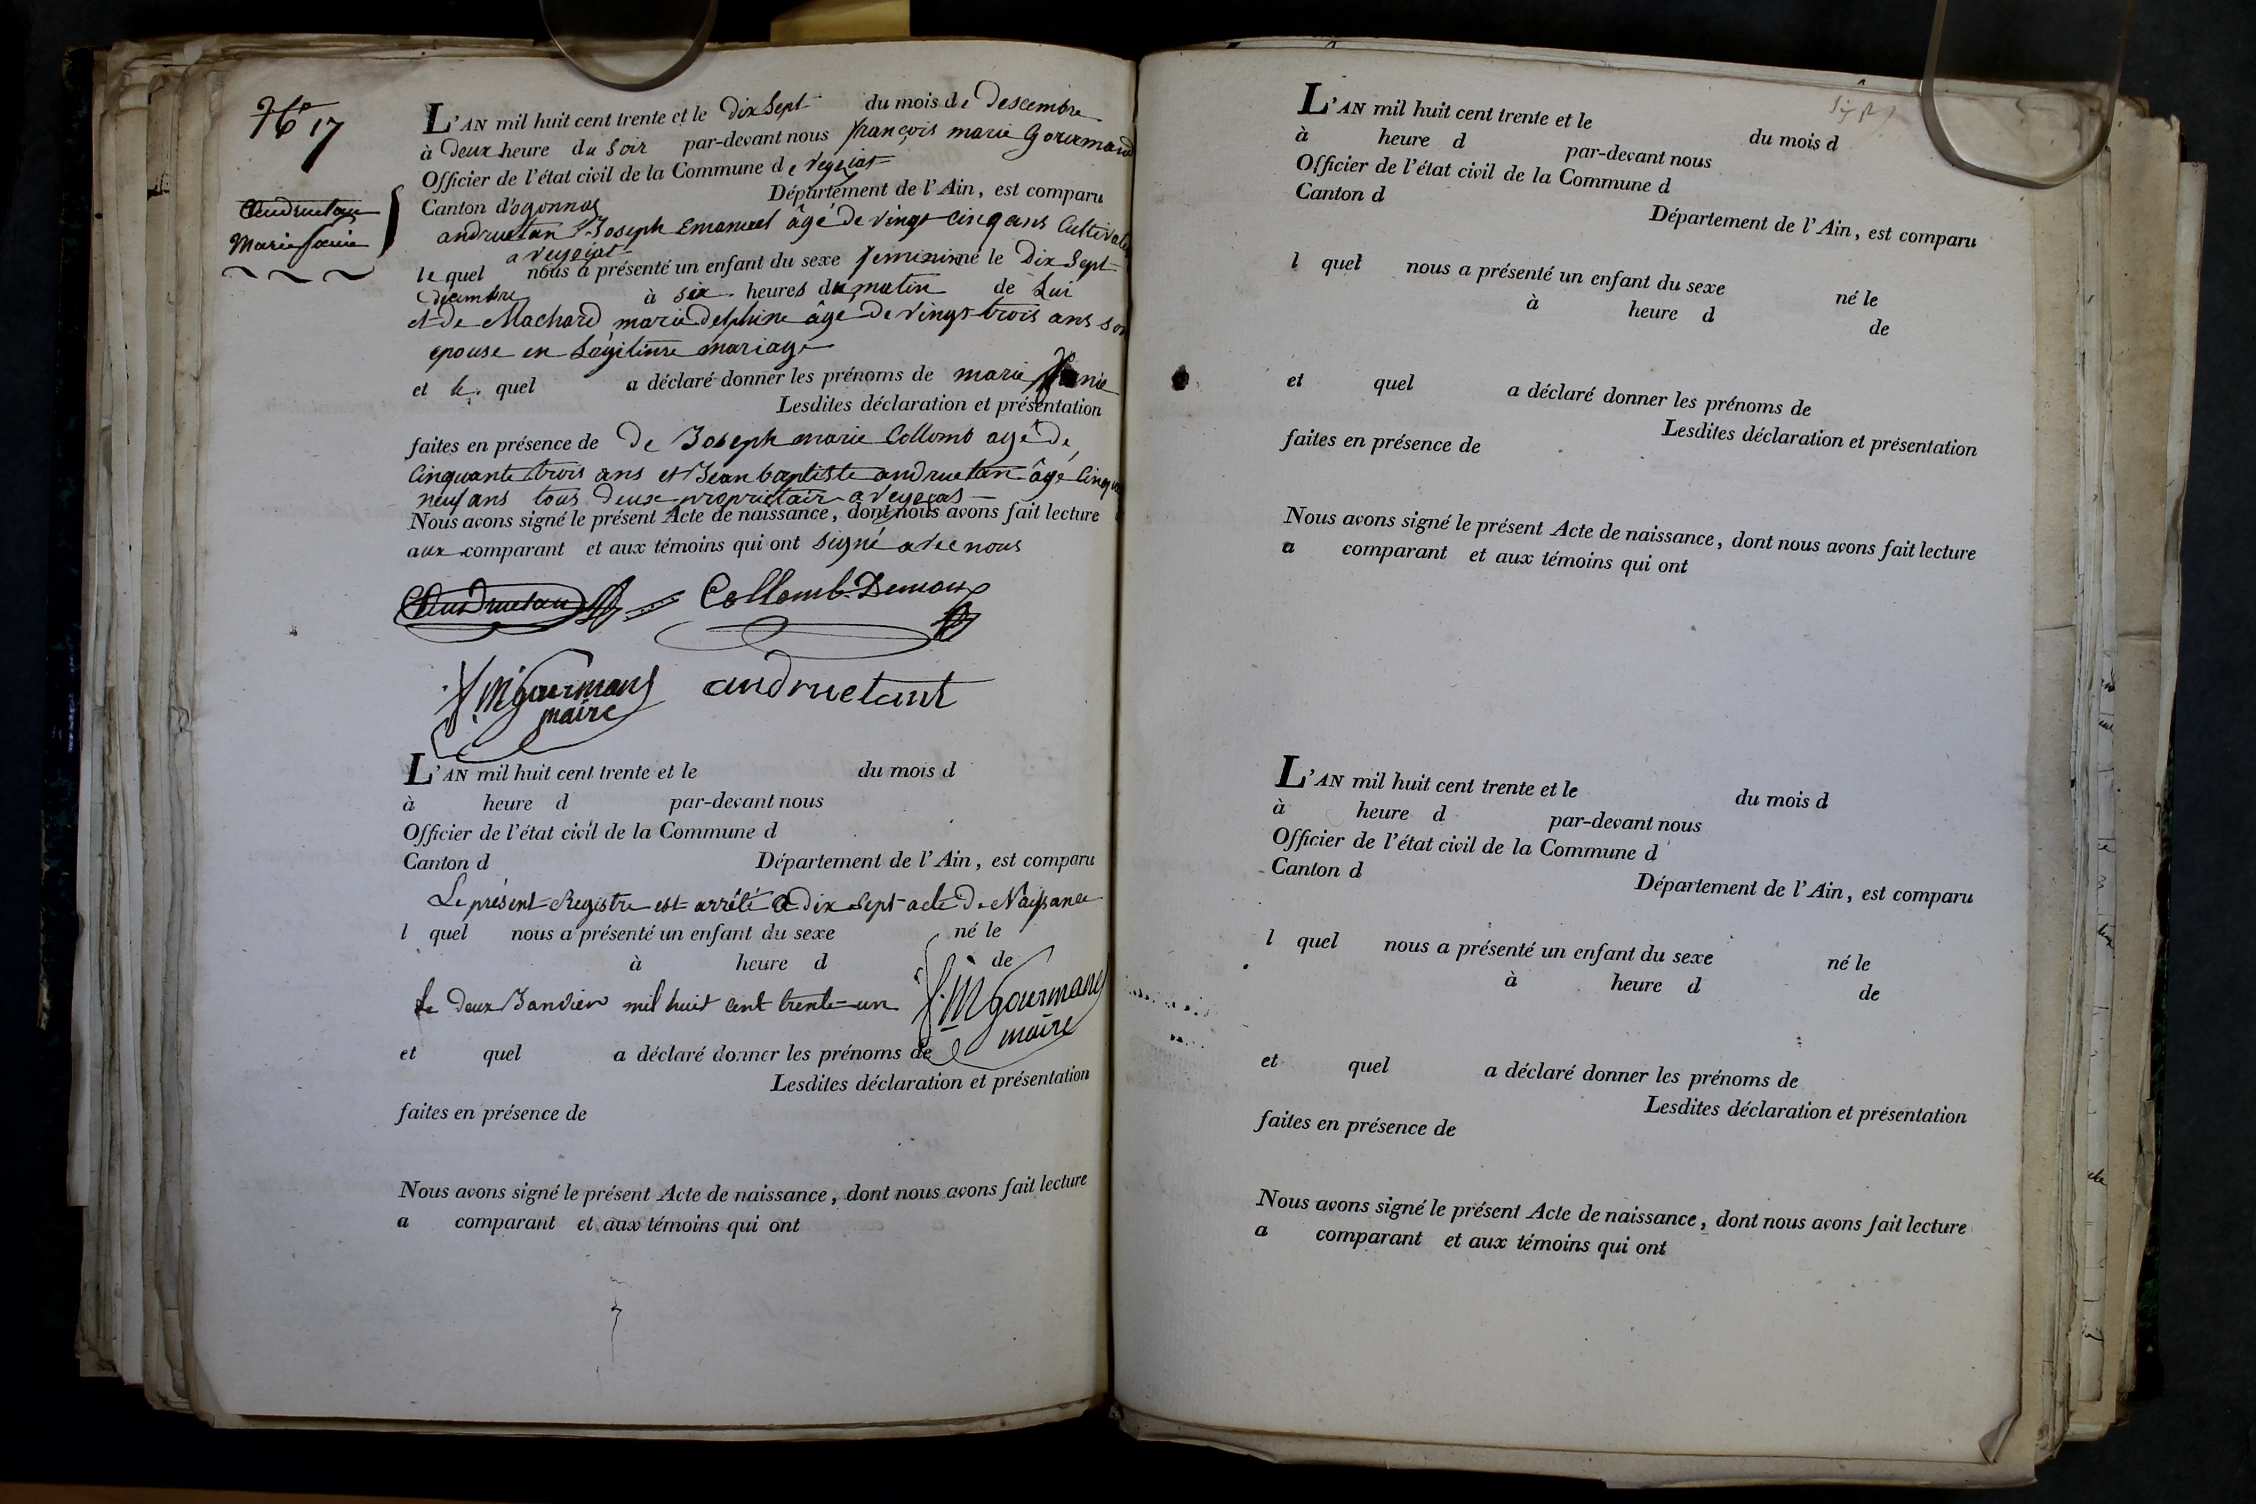 N° 17
Andruetan
Marie
L'AN mil huit cent trente et le Dix Sept du mois de Descembre
à Deux heure du Soir par-devant nous françois marie Gourmand
Officier de l'état civil de la Commune de veyziat
Canton d'ogonnas Département de l'Ain, est comparu
andruetan Joseph Emanuel âgé de vingt cinq ans Cultivateur
a veyziat
le quel nous a présenté un enfant du sexe feminin né le Dix Sept
à six heures du matin de Lui
et de Machard marie delphine âgé de vingt trois ans son
epouse en Légitime mariage
et le quel a déclaré donner les prénoms de marie
Lesdites déclaration et présentation
faites en présence de de Joseph marie Collomb agé de
Cinquante trois ans et Jean baptiste andruetan âgé Cinquante
neuf ans tous Deux proprietair a
Nous avons signé le présent Acte de naissance, dont nous avons fait lecture
aux comparant et aux témoins qui ont signé avec nous
Andruetan Collomb-Demoux
f. M gourmand andruetant
maire
L'AN mil huit cent trente et le du mois d
à heure d par-devant nous
Officier de l'état civil de la Commune d
Canton d Département de l'Ain, est comparu
Le présent Registre est arrêté a dix sept acte De Naissance
l quel nous a présenté un enfant du sexe né le
à heure d de
Le Deux Janvier mil huit cent trente-un f. M gourmand
maire
et quel a déclaré donner les prénoms de
Lesdites déclaration et présentation
faites en présence de
Nous avons signé le présent Acte de naissance, dont nous avons fait lecture
a comparant et aux témoins qui ont
L'AN mil huit cent trente et le du mois d
à heure d par-devant nous
Officier de l'état civil de la Commune d
Canton d Département de l'Ain, est comparu
l quel nous a présenté un enfant du sexe né le
à heure d de
et quel a déclaré donner les prénoms de
Lesdites déclaration et présentation
faites en présence de
Nous avons signé le présent Acte de naissance, dont nous avons fait lecture
a comparant et aux témoins qui ont
L'AN mil huit cent trente et le du mois d
à heure d par-devant nous
Officier de l'état civil de la Commune d
Canton d Département de l'Ain, est comparu
l quel nous a présenté un enfant du sexe né le
à heure d de
et quel a déclaré donner les prénoms de
Lesdites déclaration et présentation
faites en présence de
Nous avons signé le présent Acte de naissance, dont nous avons fait lecture
a comparant et aux témoins qui ont